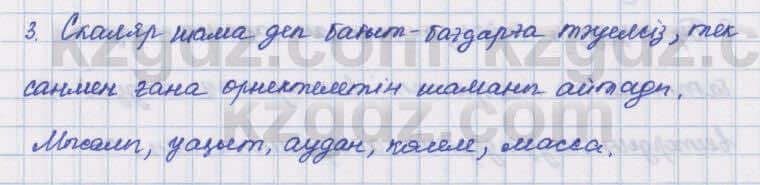 3. Скаляр шама деп бағыт-бағдарға тәуелсіз, тек
санмен ғана өрнектелетін шаманы айтады.
Мысалы, уақыт, аудан, көлем, масса.